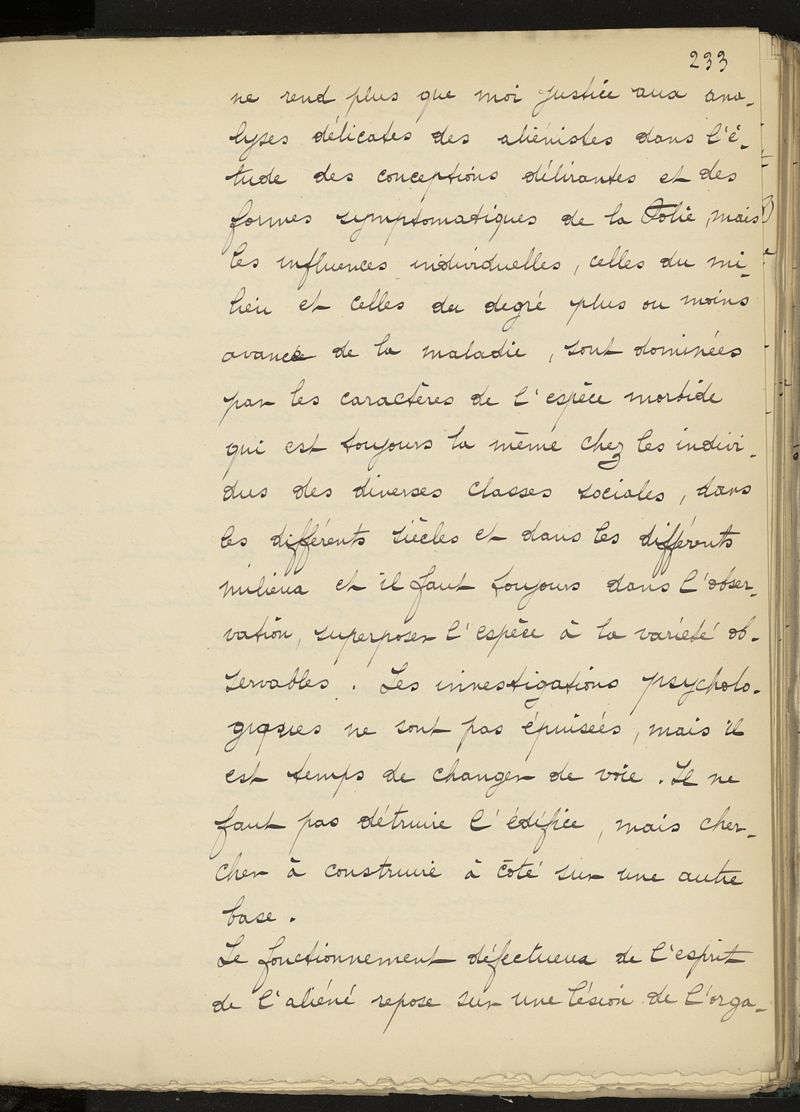 233
ne rend plus que moi justice aux ana-
lyses délicates des aliénistes dans l'é-
tude des conceptions délirantes et des
formes symptomatiques de la Folie, mais
les influences individuelles, celles du mi-
lieu et celles du degré plus ou moins
avancé de la maladie, sont dominées
par les caractères de l'espèce morbide
qui est toujours la même chez les indivi-
dus des diverses classes sociales, dans
les différents siècles et dans les différents
milieux et il faut toujours dans l'obser-
vation, superposer l'espèce à la variété ob-
servables. Les investigations psycholo-
giques ne sont pas épuisées, mais il
est temps de changer de voie. Il ne
faut pas détruire l'édifice, mais cher-
cher à construire à côté sur une autre
base.
Le fonctionnement défectueux de l'esprit
de l'aliéné repose sur une lésion de l'orga-